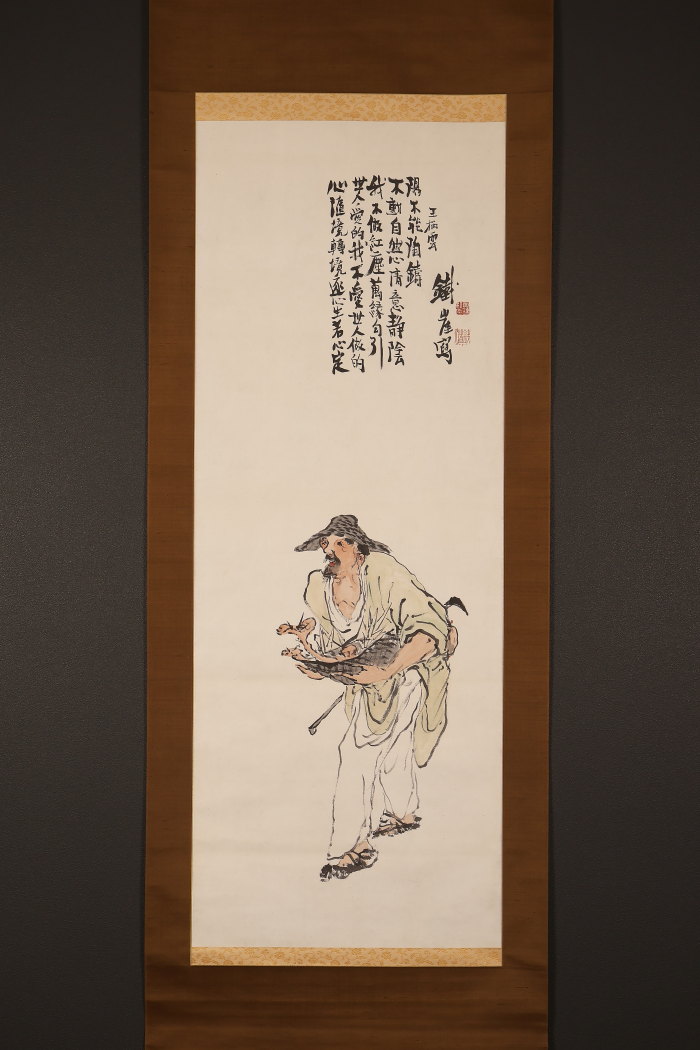 心隨境轉境逐心生若心定
世人愛的我不愛世人做的
我不做紅塵萬緣勾引
不動自然心清意靜陰
陽不能陶鑄
王栖雲
鐵崖寫